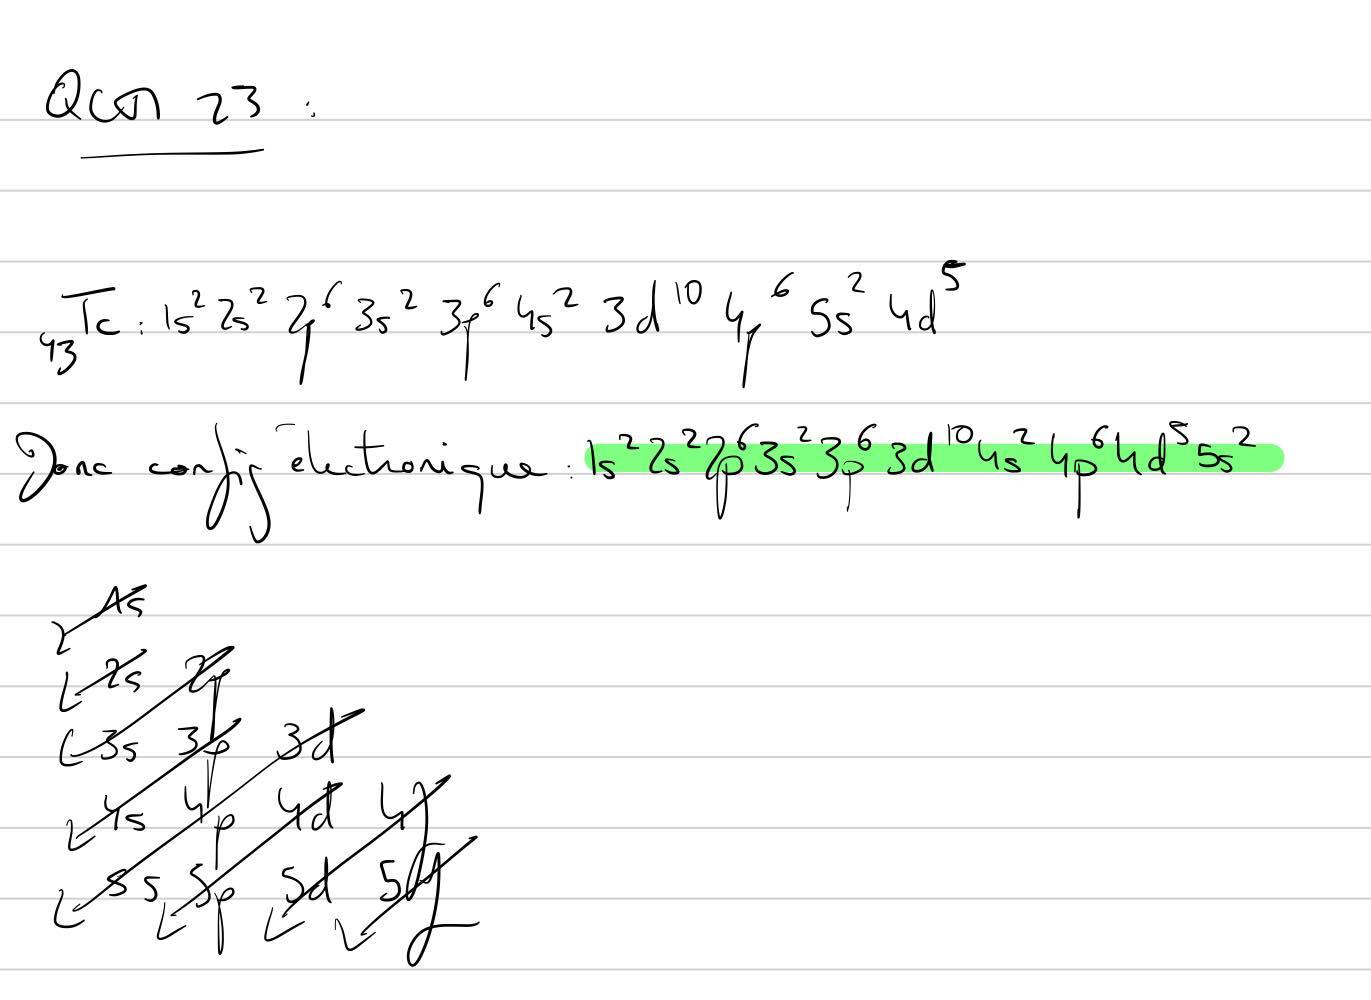 QCM 23 :
₄₃Tc : 1s² 2s² 2p⁶ 3s² 3p⁶ 4s² 3d¹⁰ 4p⁶ 5s² 4d⁵
Donc config électronique : 1s² 2s² 2p⁶ 3s² 3p⁶ 3d¹⁰ 4s² 4p⁶ 4d⁵ 5s²
1s
2s 2p
3s 3p 3d
4s 4p 4d 4f
5s 5p 5d 5f